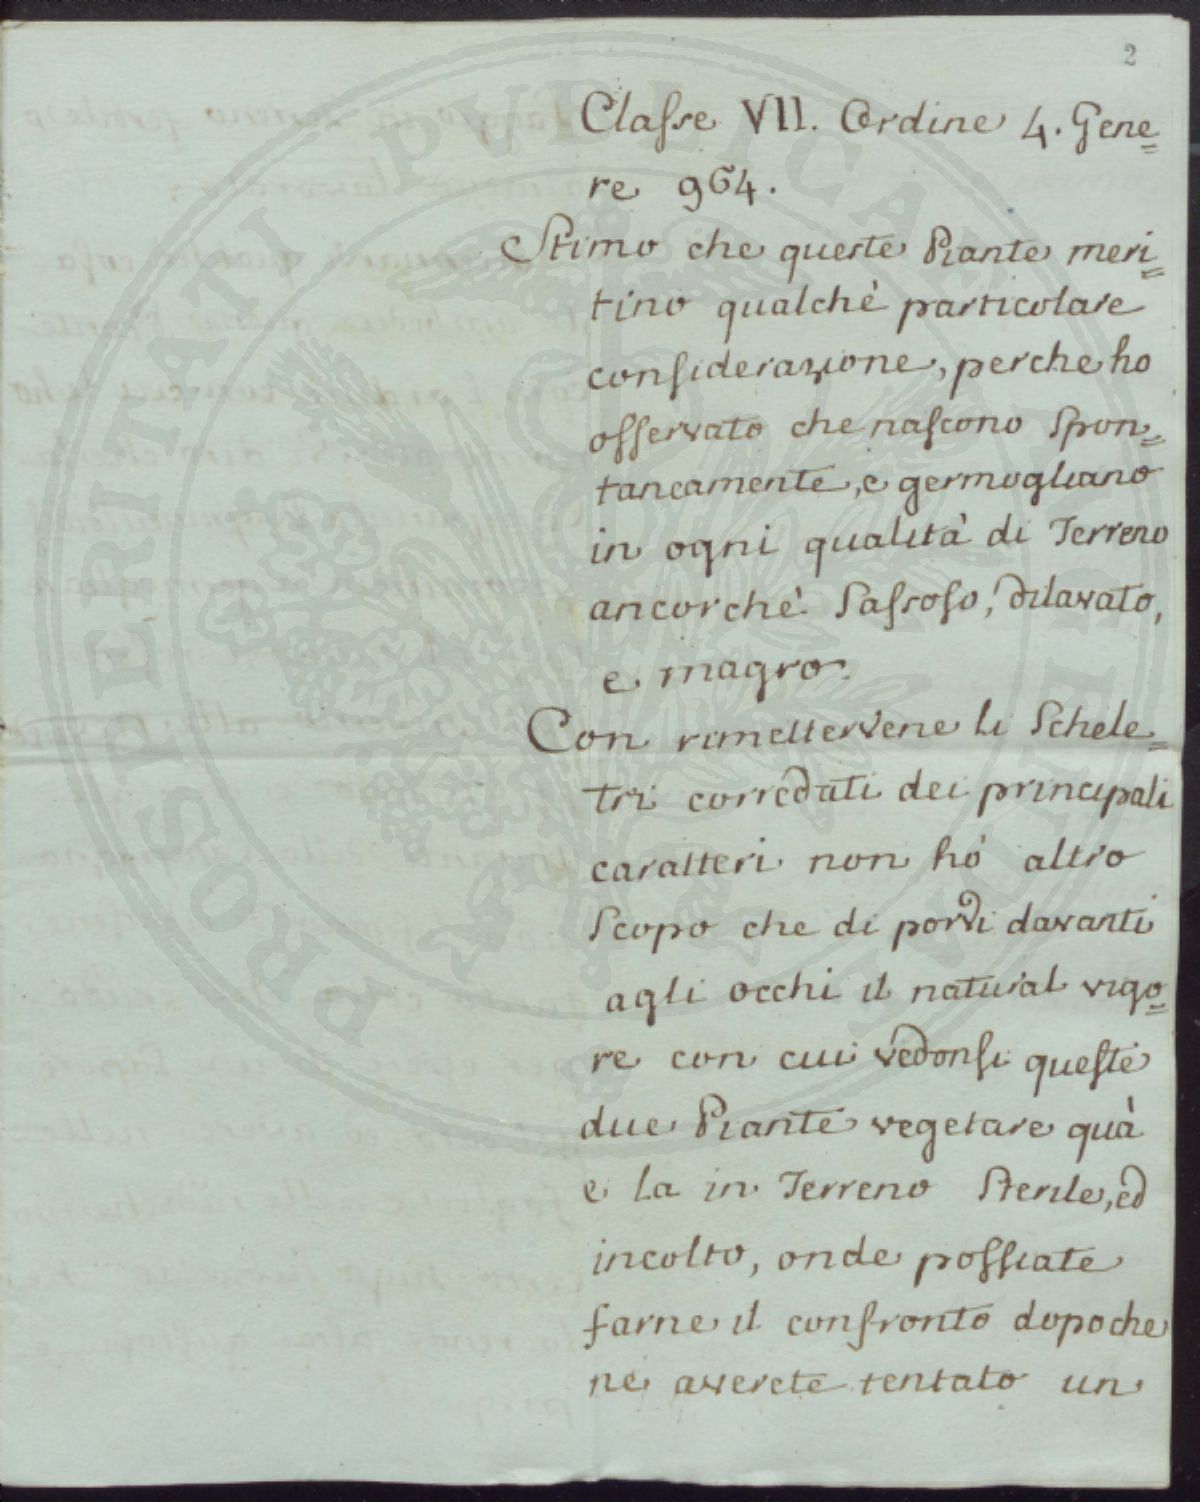 2
Classe VII. Ordine 4. Gene=
re 964.
Stimo che queste Piante meri=
tino qualchè particolare
considerazione, perche ho
osservato che nascono spon=
taneamente, e germogliano
in ogni qualità di Terreno
ancorchè Sassoso, dilavato,
e magro.
Con rimettervene li Schele=
tri corredati dei principali
caratteri non hò altro
Scopo che di porvi davanti
agli occhi il natural vigo=
re con cui vedonsi queste
due Piante vegetare quà
e la in Terreno Sterile, ed
incolto, onde possiate
farne il confronto dopo che
ne averete tentato un
PROSPERITATI PVBLICAE AVGENDAE